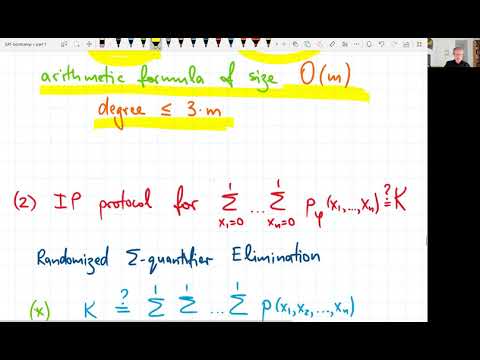 SAT-bootcamp - part 1
arithmetic formula of size O(m)
degree ≤ 3·m
(2) IP protocol for ∑_{x₁=0}^{1} ... ∑_{xₙ=0}^{1} p_φ(x₁,...,xₙ) ≟ K
Randomized Σ-quantifier Elimination
(*) K ≟ ∑^{1} ∑^{1} ... ∑^{1} p(x₁,x₂,...,xₙ)